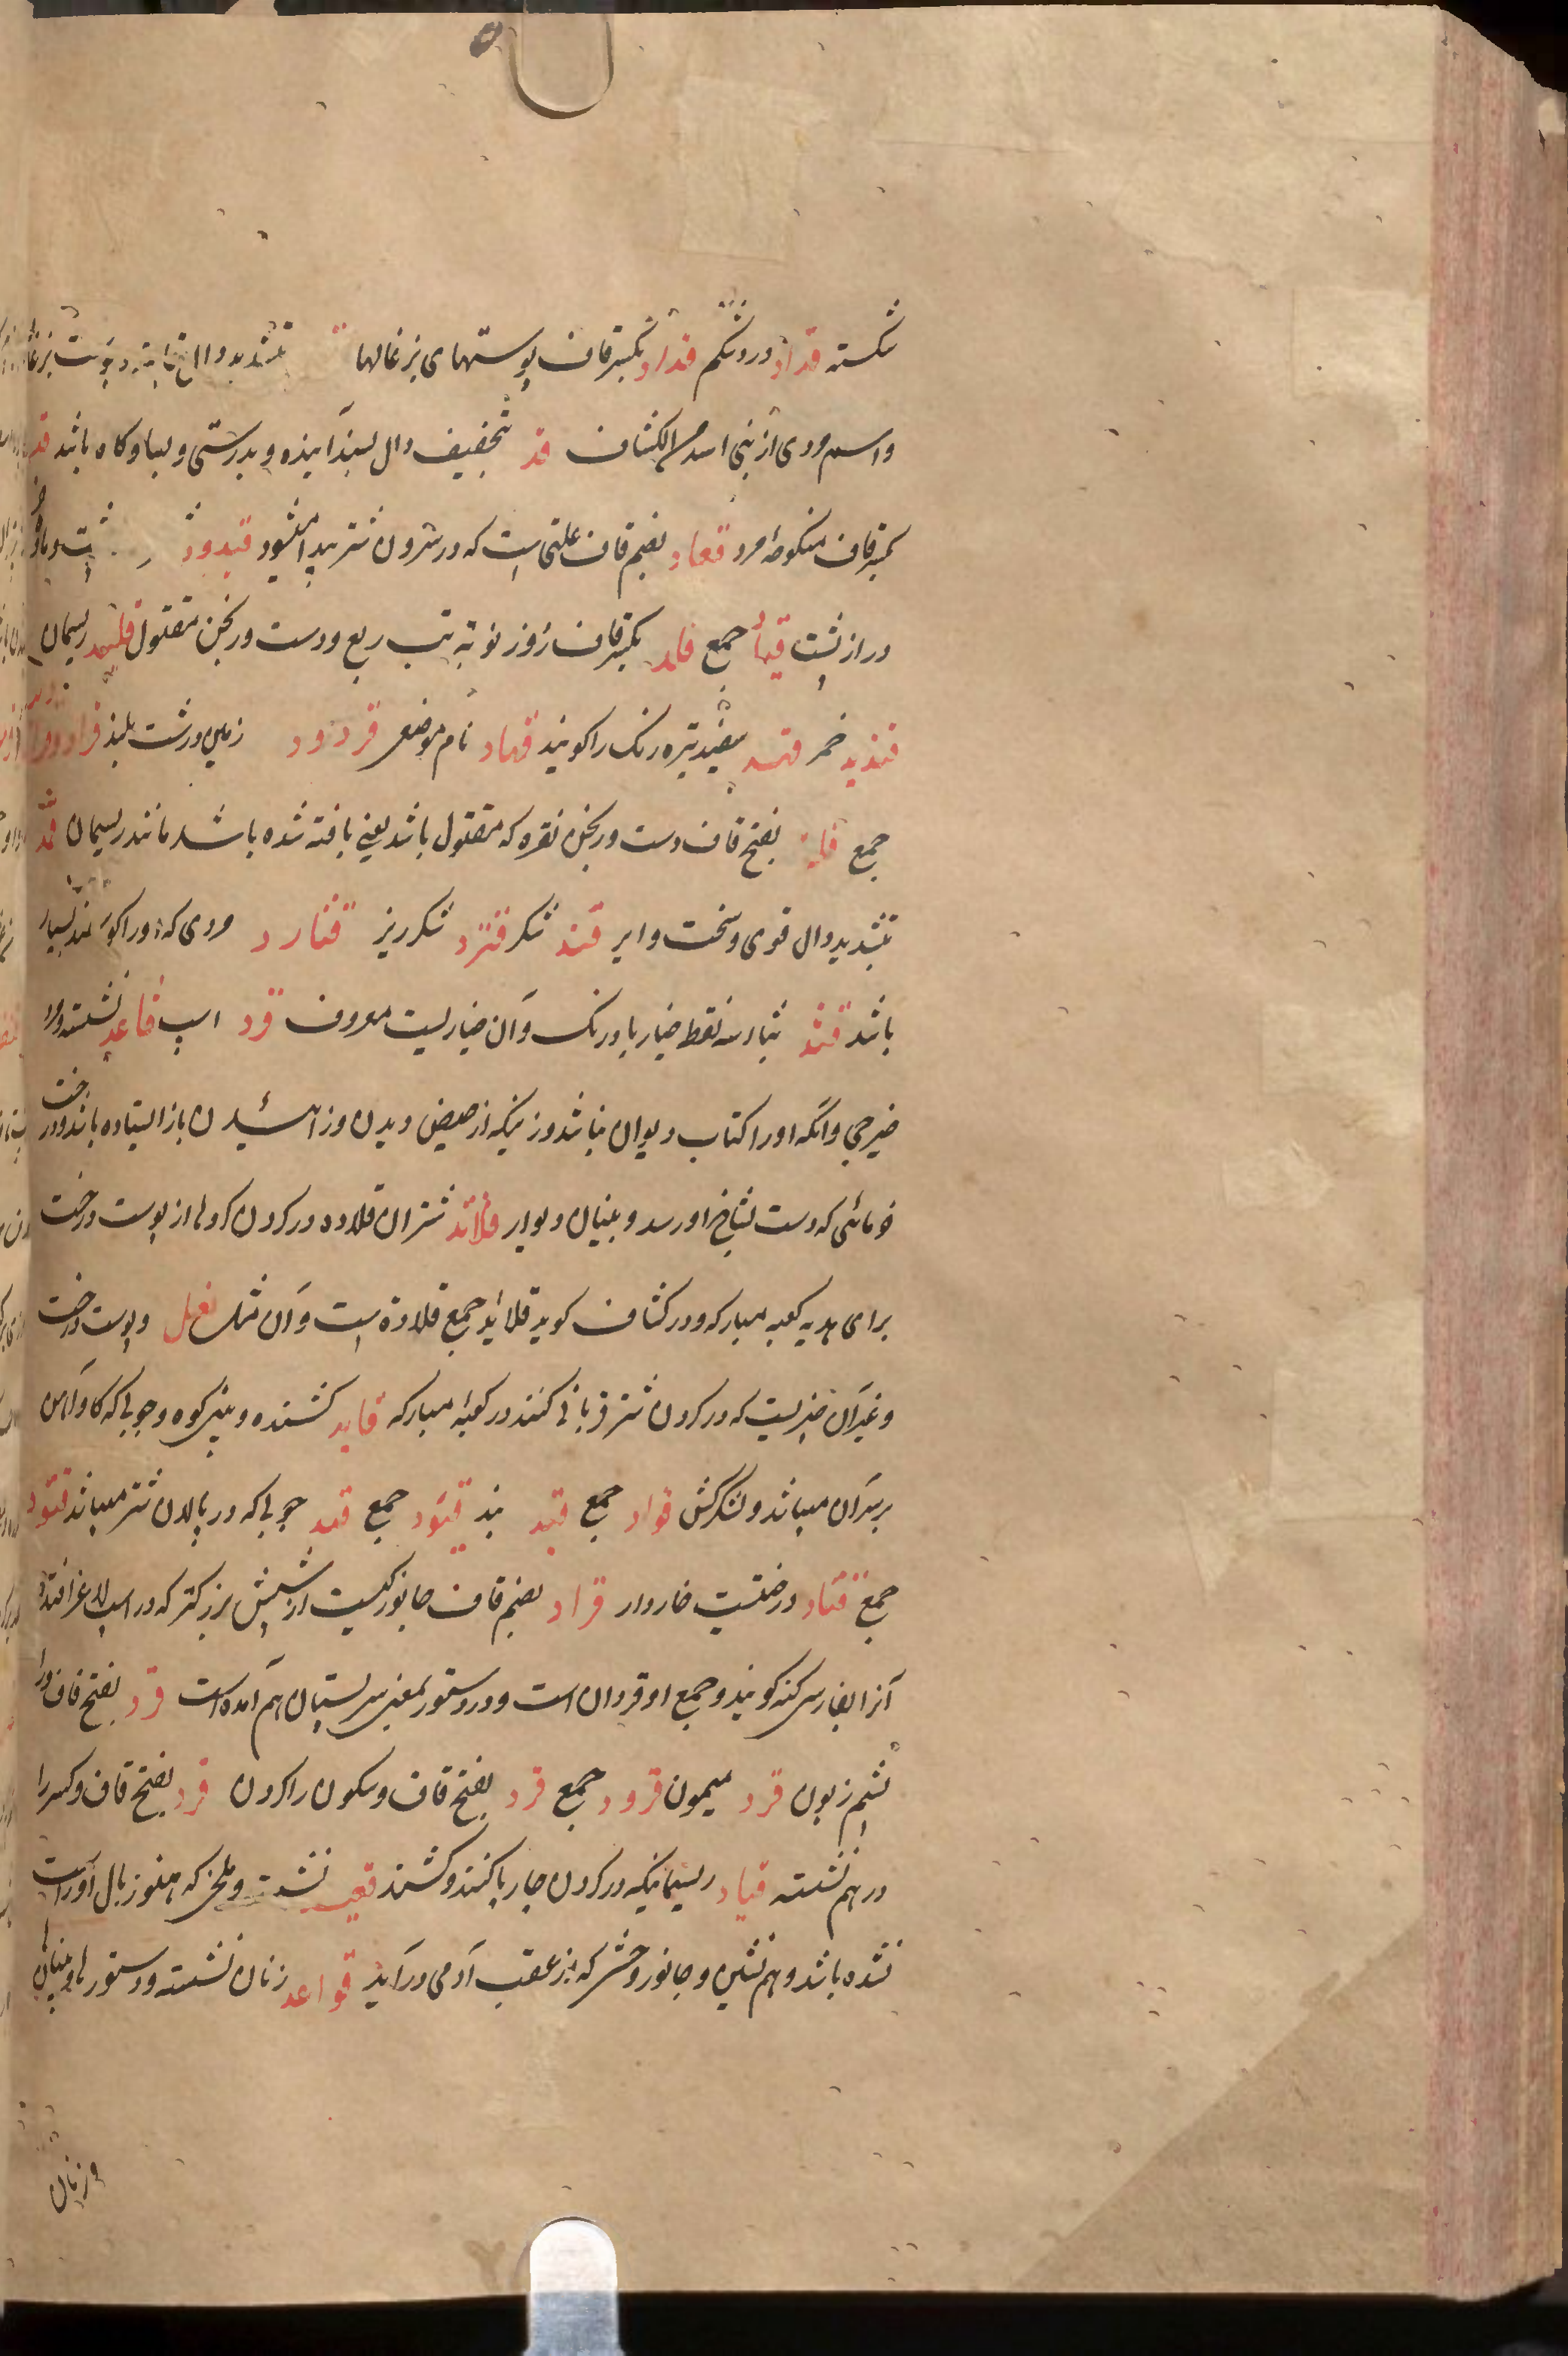 شکسته قداد درد شکم قداد بکسر قاف پوستهای بزغالها قد بتشدید دال پوست بزغاله
واسم مردی از بنی اسد من الکشاف قد بتخفیف دال بسند آینده و بدرستی و بسا و گاه باشد قد
بکسر قاف منکوحه مرد قعاد بضم قاف علتی است که در سرون شتر پیدا میشود
دراز پشت جمع قلد بکسر قاف روز نوبه تب ربع و دست ورنجن مفتول قلید ریسمان
قندید خمر قهد سفید تیره رنک را کویند قهاد نام موضعی قردود زمین درشت بلند
جمع بفتح قاف دست ورنجن نقره که مفتول باشد یعنی بافته شده باشد مانند ریسمان قمد
بتشدید دال قوی و سخت و ایر قند شکر شکر ریز مردی که اورا کوسفند بسیار
باشد قثد بثاء سه نقط خیار بادرنک و آن خیاریست معروف قود اسپ قاعد نشسته و مرد
و آنکه اورا کتاب دیوان نباشد و زنیکه از حیض دیدن و زائیدن باز ایستاده باشد و درخت
خرمائی که دست بشاخ او رسد و بنیان دیوار قلائد شتران قلاده در کردن کرده از پوست درخت
برای هدیه کعبه مبارکه و در کشاف کوید قلائد جمع قلادة است و آن مثل نعل و پوست درخت
و غیر آن چیزیست که در کردن شتر قربانی کنند در کعبه مبارکه قاید کشنده و بینی کوه و چوبی که کاو آهن
بر سر آن میباشد و لشکرکش قواد جمع قید بند قیود جمع قتد چوبی که در پالان شتر میباشد قتود
جمع قتاد درختیست خاردار قراد بضم قاف جانورکیست از شپش بزرکتر که در اسپ لاغر افتد و
آنرا بفارسی کنه کویند و جمع او قردان است و در دستور بمعنی سر پستان هم آمده است قرد بفتح قاف و را
پشم زبون قرد میمون قرود جمع قرد بفتح قاف و سکون را کردن قرد بفتح قاف و کسر را
در هم نشسته قیاد ریسمانیکه در کردن چارپا کنند و کشند قعید نشست و ملخی که هنوز بال آور است
نشده باشد و هم نشین و جانور وحشی که از عقب آدمی در آید قواعد زنان نشسته و دستورها و بنیانها
و زنان